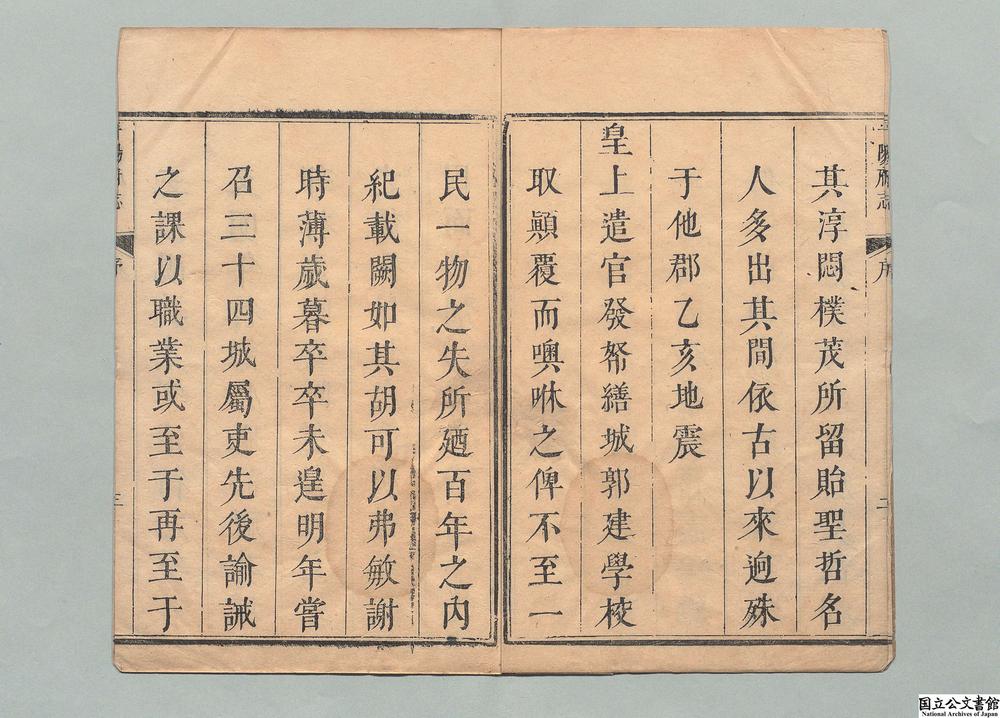 其淳悶樸茂所留貽聖哲名
人多出其間依古以來逈殊
于他郡乙亥地震
皇上遣官發帑繕城郭建學校
取顚覆而噢咻之俾不至一
民一物之失所廼百年之內
紀載闕如其胡可以弗敏謝
時薄歲暮卒卒未遑明年嘗
召三十四城屬吏先後諭誡
之課以職業或至于再至于
陽府志
序
二
陽府志
序
三
国立公文書館
National Archives of Japan